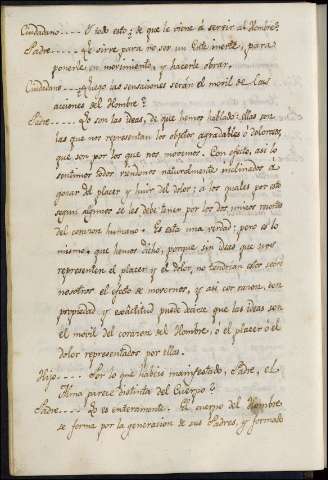 Ciudadano.... Y todo esto; de que le viene á servir al Hombre?
Padre.... Le sirve para no ser un Ente inerte, para
ponerle en movimiento, y hacerle obrar,
Ciudadano.... Luego las sensaciones serán el movil de las
acciones del Hombre?
Padre.... Lo son las ideas, de que hemos hablado: ellas son
las que nos representan los objetos agradables ó dolorosos,
que son por los que nos movemos. Con efecto, asi lo
sentimos todos vernos naturalmente inclinados á
gozar del placer y huir del dolor; a los quales por esto
segun algunos se les debe tener por los dos unicos resortes
del corazon humano. Es esta una verdad; pero es lo
mismo, que hemos dicho, porque sin ideas que nos
representen el placer y el dolor, no tendrian estos sobre
nosotros el efecto de movernos, y asi con razon, con
propiedad y exâctitud puede decirse que las ideas son
el movil del corazon del Hombre, ó el placer ó el
dolor representados por ellas.
Hijo.... Por lo que habeis manifestado, Padre, el
Alma parece distinta del Cuerpo?
Padre.... Lo es enteramente. El cuerpo del Hombre
se forma por la generacion de sus Padres, y formado